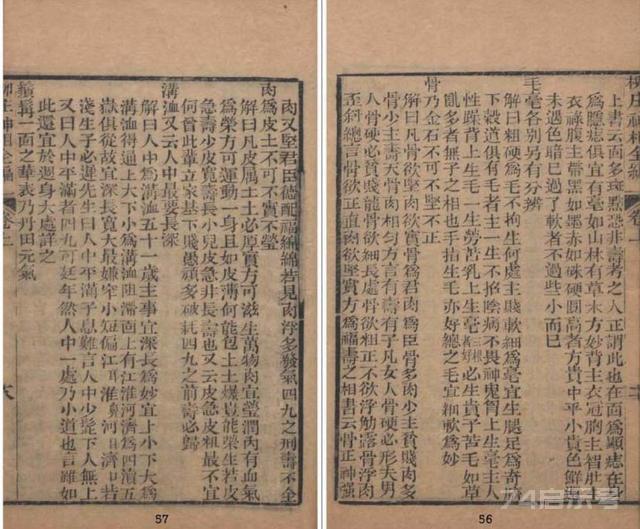 上書云面多斑點恐非壽考之人正謂此也在面爲顯痣在
爲黶痣俱宜有毫如山林有草木方妙背主衣冠胸主智肚主
衣祿腹主帶黑如墨赤如硃硬圓高者方貴中平小貴色鮮
未遇色暗已過了軟者不過些小而巳
毛毫各別另有分辨
解曰粗硬爲毛不拘生何處主賤軟細爲毫宜生腿足爲奇
下穀道俱有毛者主一生不招陰病不畏神鬼胷上生毛一生
性躁背上生毛一生勞苦乳上生毫三根好者必貴子若毛如草
亂多者無子之相也手指生毛亦好總之毛宜細軟爲妙
骨乃金石不可不堅不正
解曰凡骨欲堅肉欲實骨爲君肉爲臣骨多肉少主貧賤肉多
骨少主壽夭骨肉相勻方言有壽有子凡女人骨硬必形夫男
人骨硬必貧賤骨欲細長處骨欲直不欲浮筋露骨浮肉
歪斜總言骨欲正直肉欲堅實方爲福壽之相書云骨正神强
56
肉又堅君臣德配福綿綿若見肉浮多發氣四九之刑壽不全
肉爲皮土不可不實不瑩
解曰凡皮屬土土必厚實方可滋生萬物肉宜瑩潤內有血氣
爲榮方可運動一身且如皮薄何能包土土爆豈能榮生若皮
急少壽皮寬壽長小兒皮急非長壽也又云皮急皮粗甚不宜
何曾此輩立家基下賤愚頑多破耗四九之前壽必歸
溝洫又云人中最要長深
解曰人中爲溝洫五十一歲主事宜深長爲妙宜上小下大爲
溝洫得通上大下小爲溝洫阻滯面上有江淮河濟爲四瀆五
嶽俱從故宜深長寬大最嫌窄小短偏江耳淮鼻河目濟口若
淺生子必遲先生曰人中平滿子息難言人中少髭下人無上
又曰人中平滿者四九可廷年然人中一處乃小道也言雖如
此還宜於週身大處詳之
鬚髯一面之華表乃丹田元氣
柳庄神相全編
57